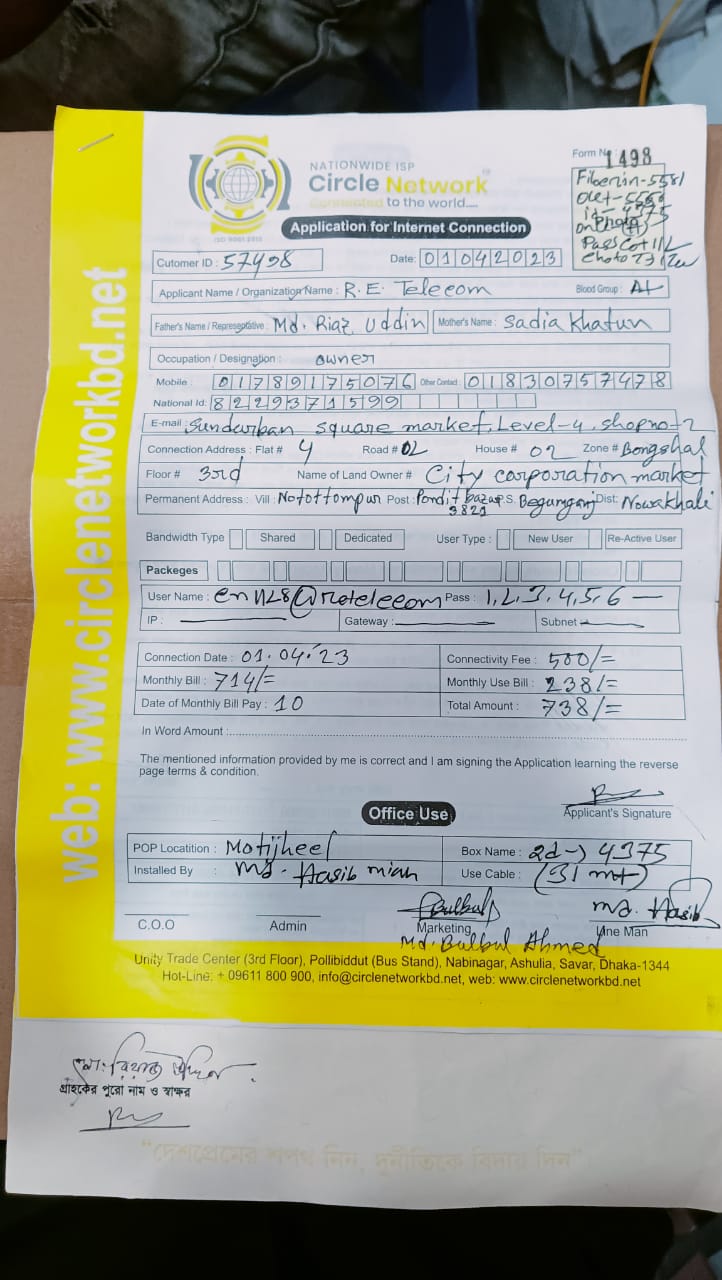 web: www.circlenetworkbd.net
NATIONWIDE ISP
Circle Network
Connected to the world....
ISO 9001:2015
Application for Internet Connection
Form No: 1498
Fiberzin-5581
id-4375
Cutomer ID : 57498
Date: 01042023
Applicant Name / Organization Name : R.E. Telecom Blood Group : A+
Father's Name / Represetative : Md. Riaz Uddin Mother's Name : Sadia Khatun
Occupation / Designation : owner
Mobile : 01789175076 Other Contact : 01830757478
National Id: 8229371599
E-mail : Sundurban square market, Level-4, shop no-2
Connection Address : Flat # 4 Road # 02 House # 02 Zone # Bongshal
Floor # 3rd Name of Land Owner # City corporation market
Permanent Address : Vill : Notottompur Post : Pondit bazar 3821 P.S. Begumganj Dist: Nowakhali
Bandwidth Type Shared Dedicated User Type : New User Re-Active User
Packeges
User Name : Pass : 1,2,3,4,5,6 —
IP : Gateway : Subnet
Connection Date : 01.04.23 Connectivity Fee : 500/=
Monthly Bill : 714/= Monthly Use Bill : 238/=
Date of Monthly Bill Pay : 10 Total Amount : 738/=
In Word Amount :
The mentioned information provided by me is correct and I am signing the Application learning the reverse
page terms & condition.
Applicant's Signature
Office Use
POP Locatition : Motijheel Box Name : 2d-) 4375
Installed By : Md. Hasib mian Use Cable : (31 mt)
Bulbul
Md. Hasib
C.O.O Admin Marketing Line Man
Md. Bulbul Ahmed
Unity Trade Center (3rd Floor), Pollibiddut (Bus Stand), Nabinagar, Ashulia, Savar, Dhaka-1344
Hot-Line: + 09611 800 900, info@circlenetworkbd.net, web: www.circlenetworkbd.net
মো: রিয়াজ উদ্দিন
গ্রাহকের পুরো নাম ও স্বাক্ষর
“দেশপ্রেমের শপথ নিন, দুর্নীতিকে বিদায় দিন”